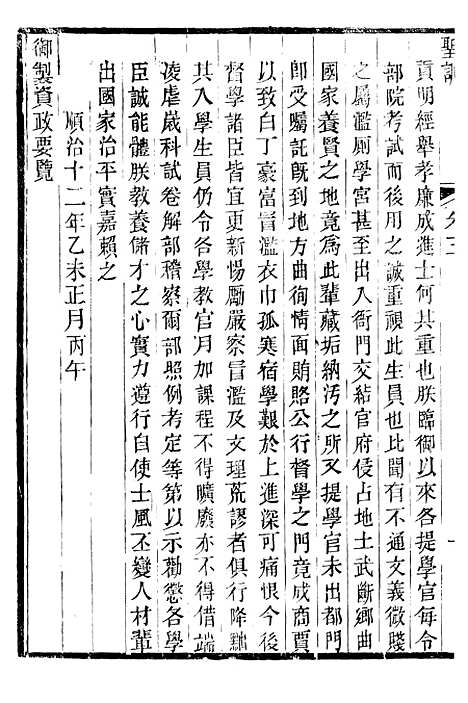 聖訓
貢明經舉孝廉成進士何其重也朕臨御以來各提學官每令
部院考試而後用之誠重視此生員也比聞有不通文義微賤
之屬濫廁學宮甚至出入衙門交結官府侵占地土武斷鄉曲
國家養賢之地竟為此輩藏垢納汚之所又提學官未出都門
即受囑託旣到地方曲徇情面賄賂公行督學之門竟成商賈
以致白丁豪富冒濫衣巾孤寒宿學艱於上進深可痛恨今後
督學諸臣皆宜更新惕勵嚴察冒濫及文理荒謬者俱行降黜
其入學生員仍令各學教官月加課程不得曠廢亦不得借端
凌虐歲科試卷解部稽察爾部照例考定等第以示勸懲各學
臣誠能體朕教養儲才之心實力遵行自使士風丕變人材輩
出國家治平實嘉賴之
順治十二年乙未正月丙午
御製資政要覽